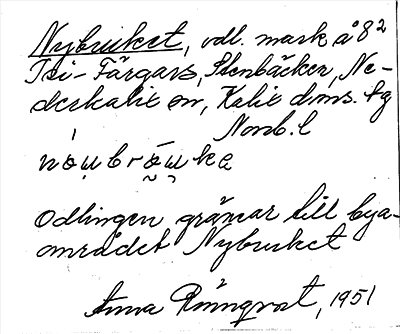 Nybruket, odl. mark å 82
Tri-Färgars, Stenbäcken, Ne-
derkalix sn, Kalix dms. tg
Norrb. l
Odlingen gränsar till bya-
området Nybruket
Anna Rönnqvist, 1951